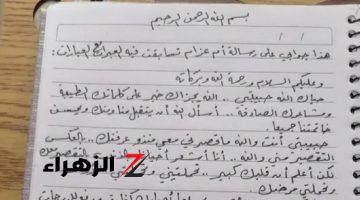 بسم الله الرحمن الرحيم
هذا جوابي على رسالة أم عزام تسابقت فيه العبرات العبارات:
وعليكم السلام ورحمة الله وبركاته
حياك الله حبيبتي .. الله يجزاك خير على كلماتك الطيبة
ومشاعرك الصادقة .. أسأل الله أن يتقبل منا ومنك ويحسن
خاتمتنا جميعا.
حبيبتي أنت والله ما قصرتي معي منذ عرفتك .. بالعكس
التقصير مني والله .. أنا أشعر أحيانا
لكن أعلم أن قلبك كبير .. تحملتيني
وتحملتي مرضك
الزهراء